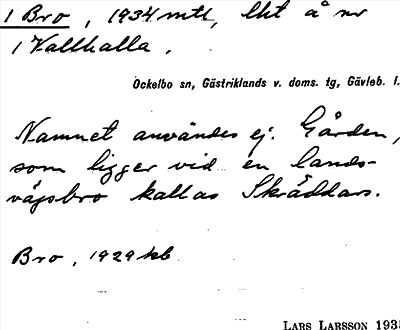 1 Bro, 1934 mtl, lht å nr
1 Vallhalla.
Ockelbo sn, Gästriklands v. doms. tg, Gävleb. l.
Namnet användes ej. Gården,
som ligger vid en lands-
vägsbro kallas Skräddars.
Bro, 1929 kb
LARS LARSSON 1935